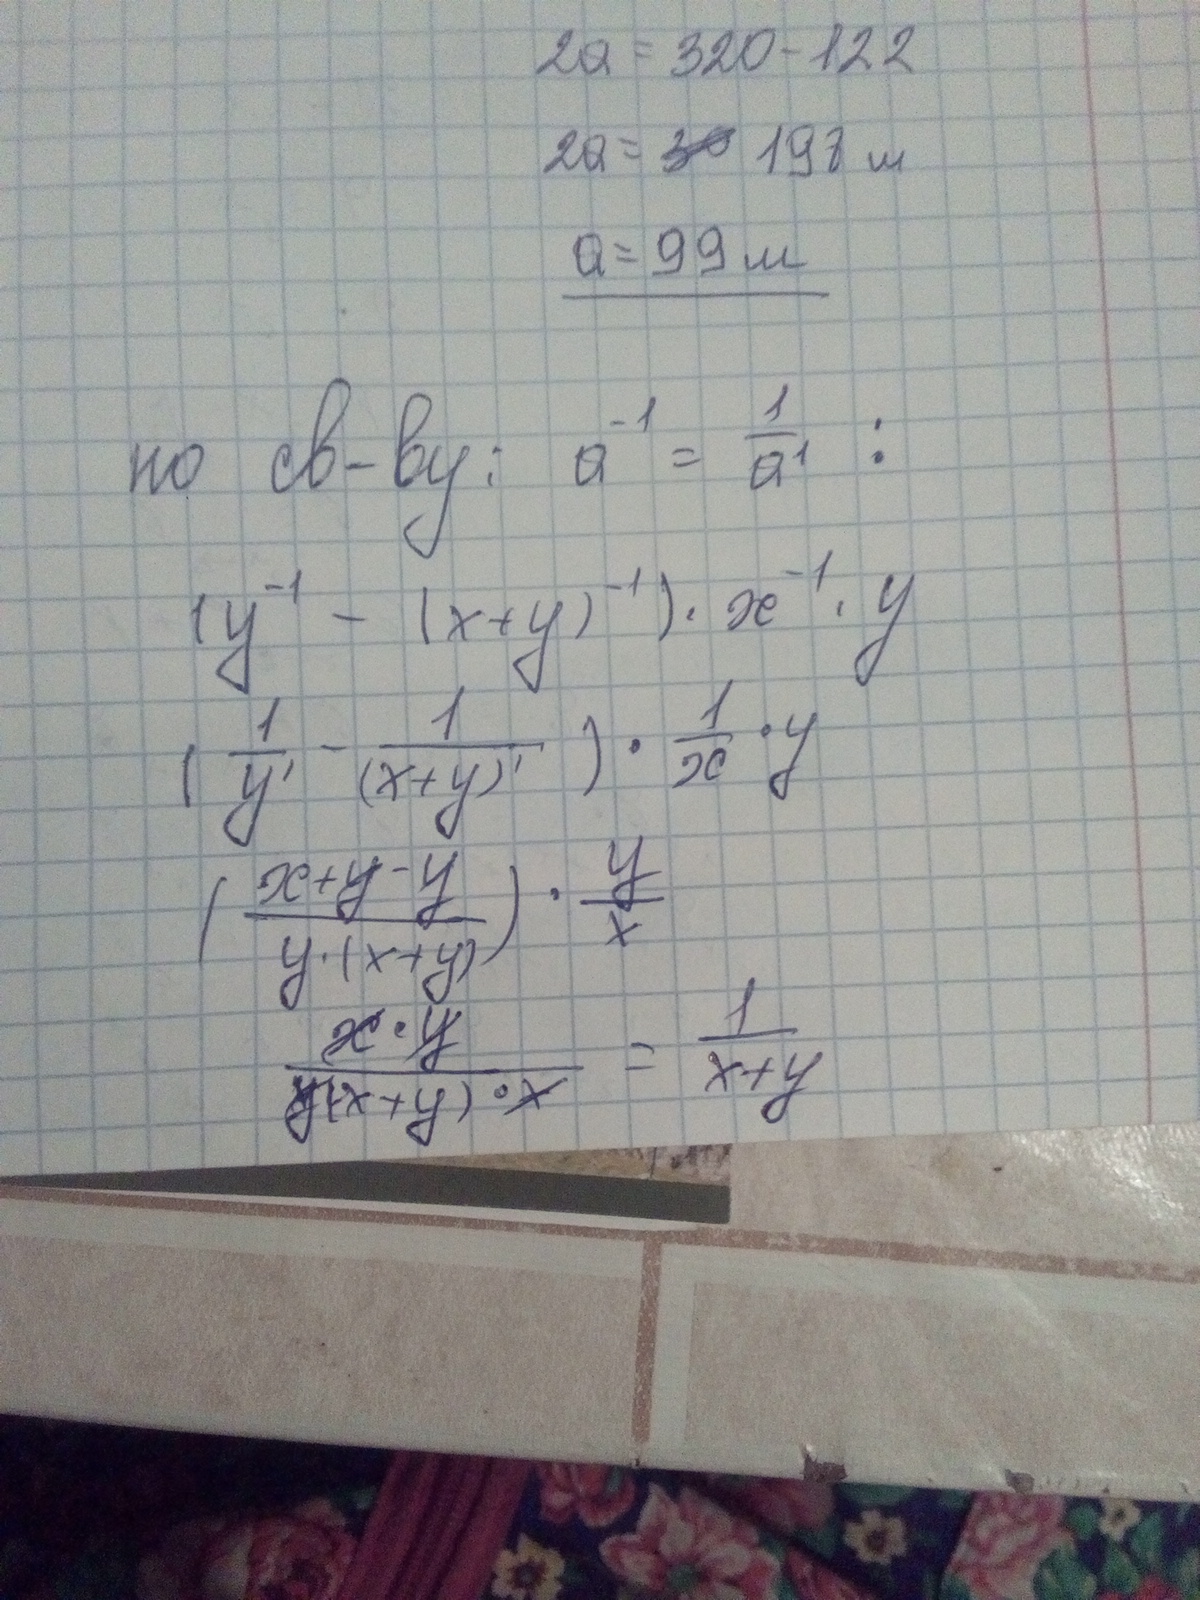 2a = 320 - 122
2a = 198 м
a = 99 м
по св-ву: a⁻¹ = 1/a¹ :
(y⁻¹ - (x+y)⁻¹) · x⁻¹ · y
(1/y¹ - 1/(x+y)¹) · 1/x · y
((x+y-y)/(y·(x+y))) · y/x
(x·y)/(y(x+y)·x) = 1/(x+y)